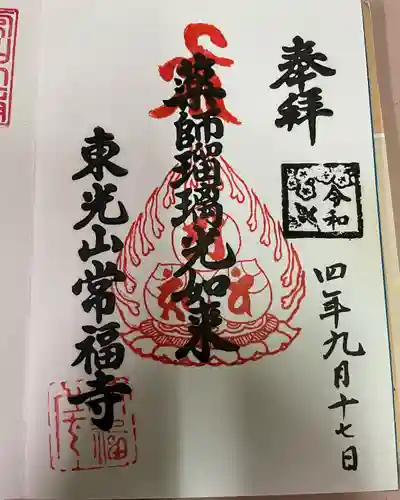 奉拝
令和
四年九月十七日
薬師瑠璃光如来
東光山常福寺